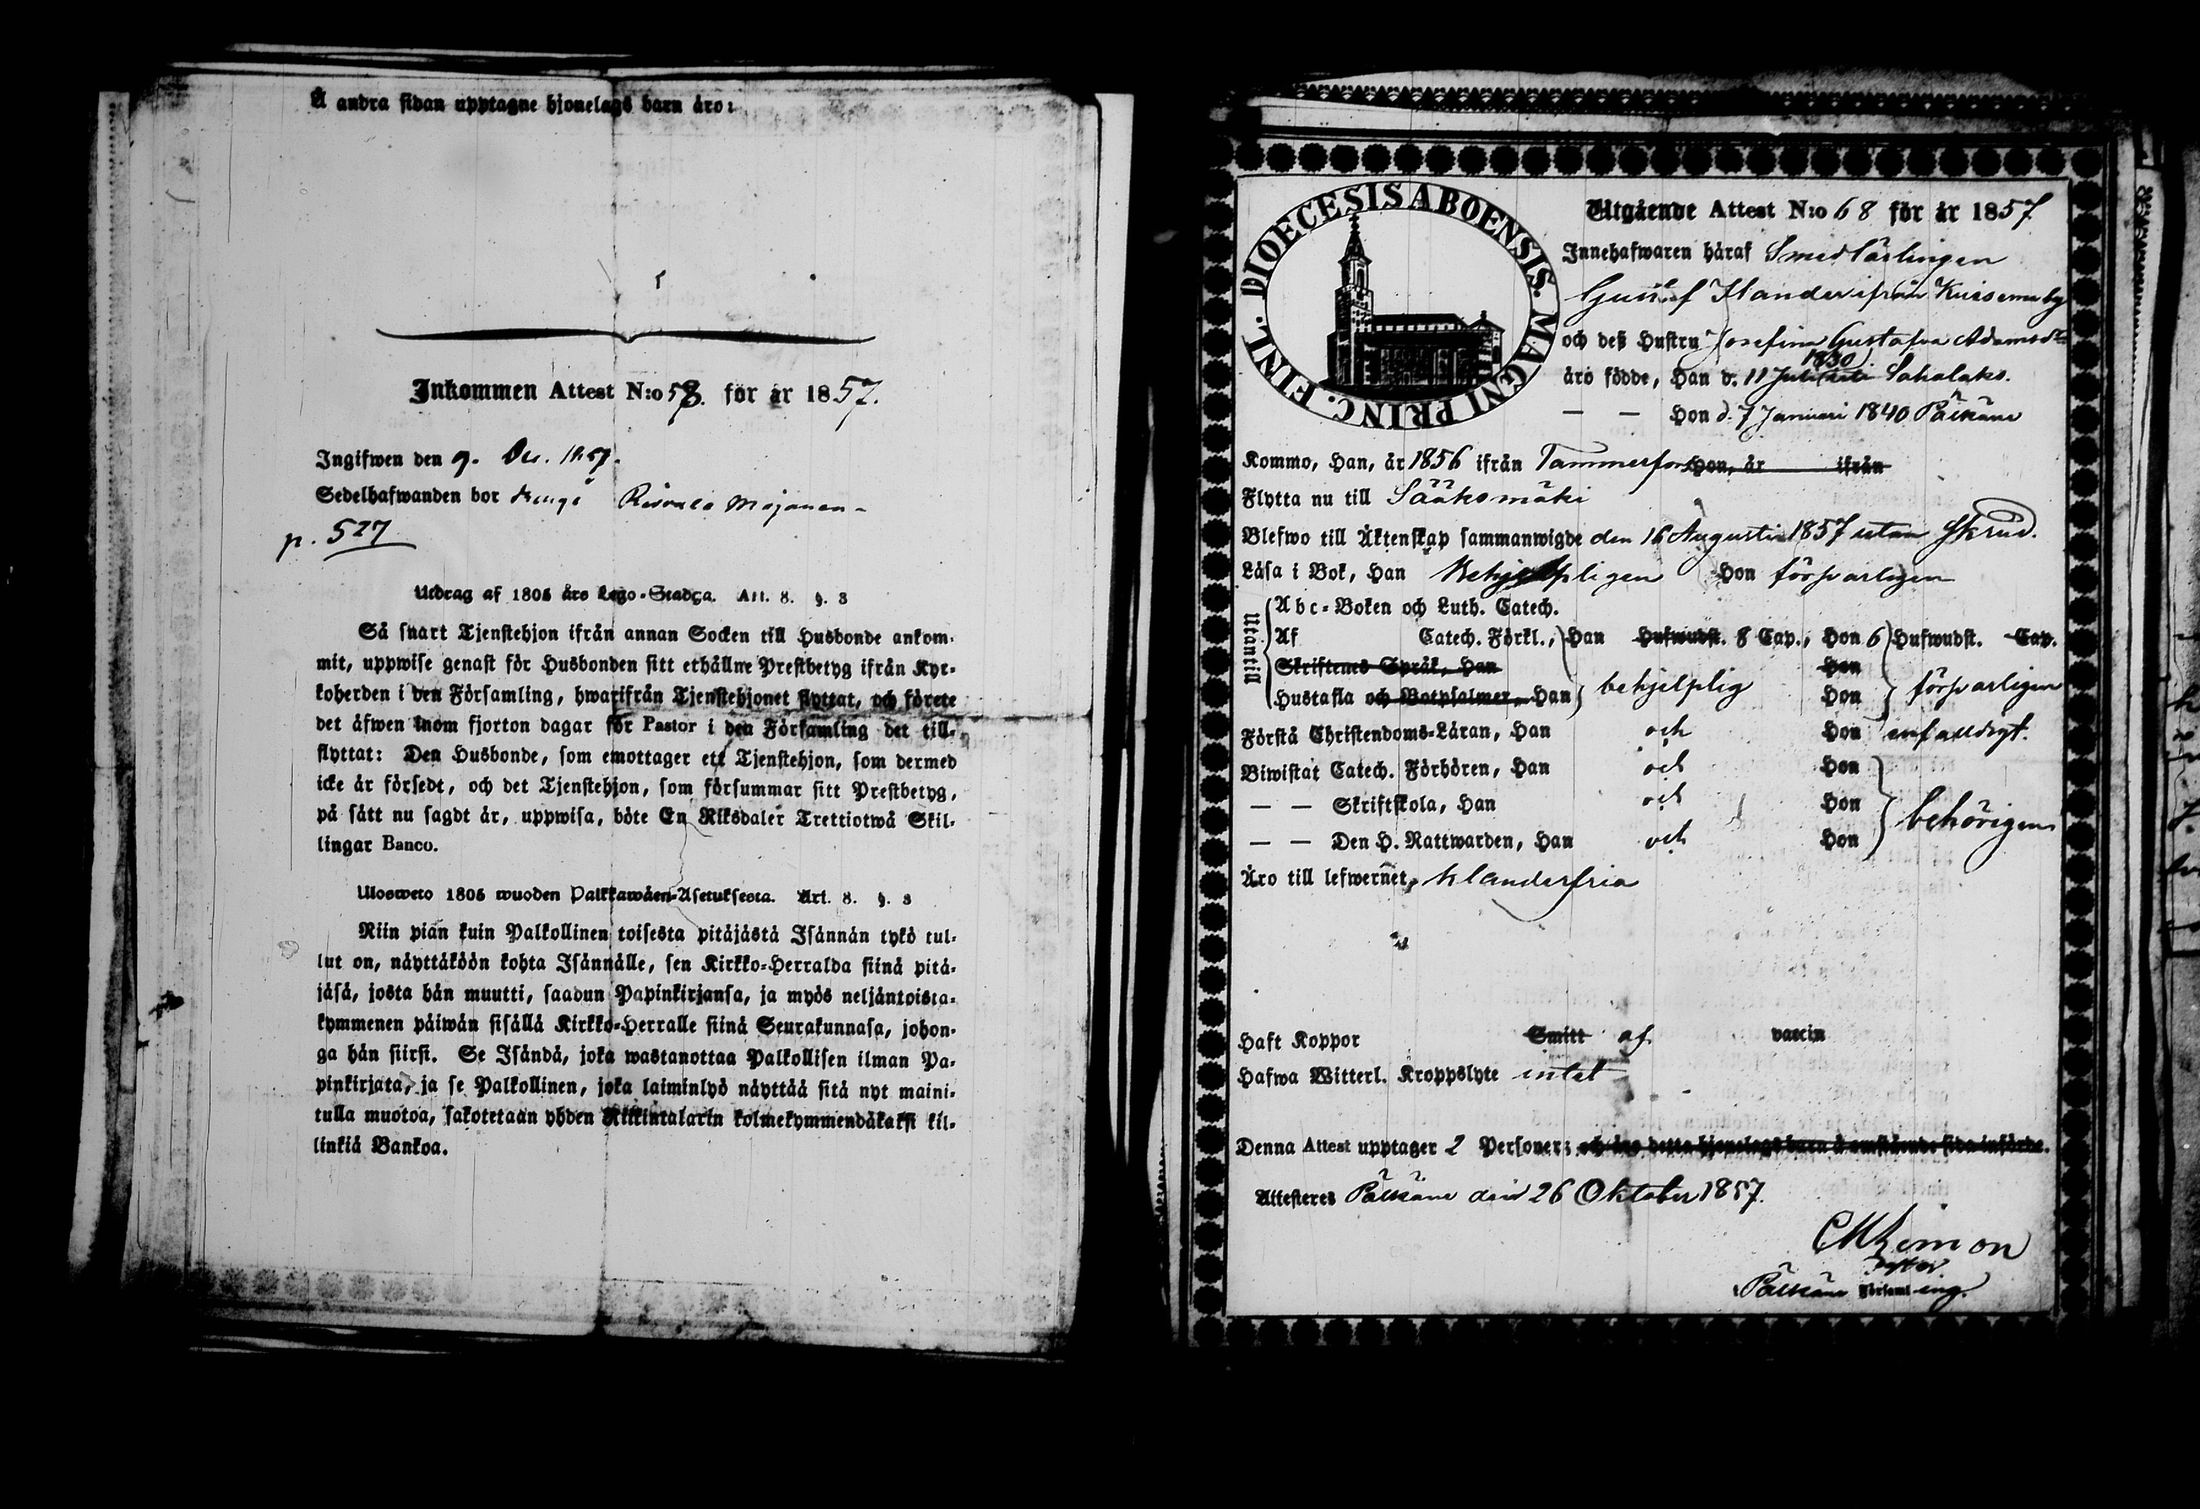 Å andra sidan upptagne hjonelags barn äro:
Inkommen Attest N:o 58. för år 1857.
Ingifwen den 9. Dec. 1857.
Sedelhafwanden bor
p. 527
Utdrag af 1805 års Lego-Stadga. Art. 8. §. 3
Så snart Tjenstehjon ifrån annan Socken till Husbonde ankom-
mit, uppwise genast för Husbonden sitt erhållne Prestbetyg ifrån Kyr-
koherden i den Församling, hwarifrån Tjenstehjonet flyttat, och förete
det äfwen inom fjorton dagar för Pastor i den Församling det till-
flyttat: Den Husbonde, som emottager ett Tjenstehjon, som dermed
icke är försedt, och det Tjenstehjon, som försummar sitt Prestbetyg,
på sätt nu sagdt är, uppwisa, böte En Riksdaler Trettiotwå Skil-
lingar Banco.
Ulosweto 1805 wuoden Palkkawäen-Asetuksesta. Art. 8. §. 3
Niin pian kuin Palkollinen toisesta pitäjästä Isännän tykö tul-
lut on, näyttäköön kohta Isännälle, sen Kirkko-Herralda siinä pitä-
jäsä, josta hän muutti, saadun Papinkirjansa, ja myös neljäntoista-
kymmenen päiwän sisällä Kirkko-Herralle siinä Seurakunnasa, johon-
ga hän siirsi. Se Isändä, joka wastanottaa Palkollisen ilman Pa-
pinkirjata, ja se Palkollinen, joka laiminlyö näyttää sitä nyt maini-
tulla muotoa, sakotetaan yhden Rikintalarin kolmekymmendäkaksi kil-
linkiä Bankoa.
DIOECESIS ABOENSIS. MAGNI PRINC. FINL.
Utgående Attest N:o 68 för år 1857
Innehafwaren häraf Smedlärlingen
Gustaf Ilander ifrån Kuisema by
och deß Hustru Josefina Gustafva Adamsdr
1830
äro födde, Han d. 11 Juli Sahalaks.
— — Hon d. 7 Januari 1840 Pälkäne
Kommo, Han, år 1856 ifrån Tammerfors Hon, år ifrån
Flytta nu till Sääksmäki
Blefwo till Äktenskap sammanwigde den 16 Augusti 1857 utan Skrud.
Läsa i Bok, Han Behjelpligen Hon försvarligen
Utantill
Abc-Boken och Luth. Catech.
Af Catech. Förkl., Han Hufwudst. 8 Cap., Hon 6 Hufwudst. Cap.
Skriftenes Språk, Han Hon
Hustafla och Botpsalmer, Han behjelplig Hon försvarligen
Förstå Christendoms-Läran, Han och Hon enfaldigt.
Biwistat Catech. Förhören, Han och Hon
— — Skriftskola, Han och Hon
— — Den H. Nattwarden, Han och Hon behörigen
Äro till lefwernet, klanderfria
Haft Koppor Smitt af vaccin
Hafwa Witterl. Kroppslyte intet
Denna Attest upptager 2 Personer; och äro detta hjonelags barn å omstående sida införde.
Attesteres Pälkäne den 26 Oktober 1857.
Pastor
i Pälkäne Församling.